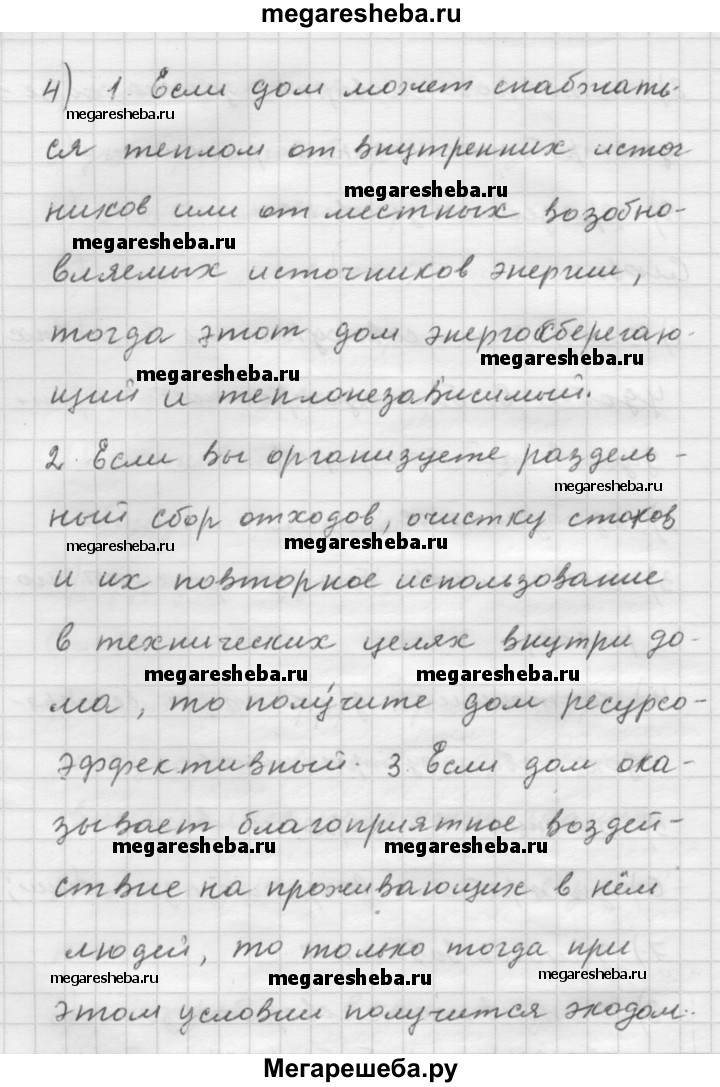 megaresheba.ru
4) 1. Если дом может снабжать-
megaresheba.ru
ся теплом от внутренних источ
megaresheba.ru
ников или от местных возобно-
megaresheba.ru
вляемых источников энергии,
тогда этот дом энергосберегаю-
megaresheba.ru
megaresheba.ru
щий и теплонезависимый.
2. Если вы организуете раздель-
megaresheba.ru
ный сбор отходов, очистку стоков
megaresheba.ru megaresheba.ru
и их повторное использование
в технических целях внутри до-
megaresheba.ru megaresheba.ru
ма, то получите дом ресурсо-
эффективный. 3. Если дом ока-
зывает благоприятное воздей-
megaresheba.ru megaresheba.ru
ствие на проживающих в нём
людей, то только тогда при
megaresheba.ru megaresheba.ru megaresheba.ru
этом условии получится экодом.
Мегарешеба.ру